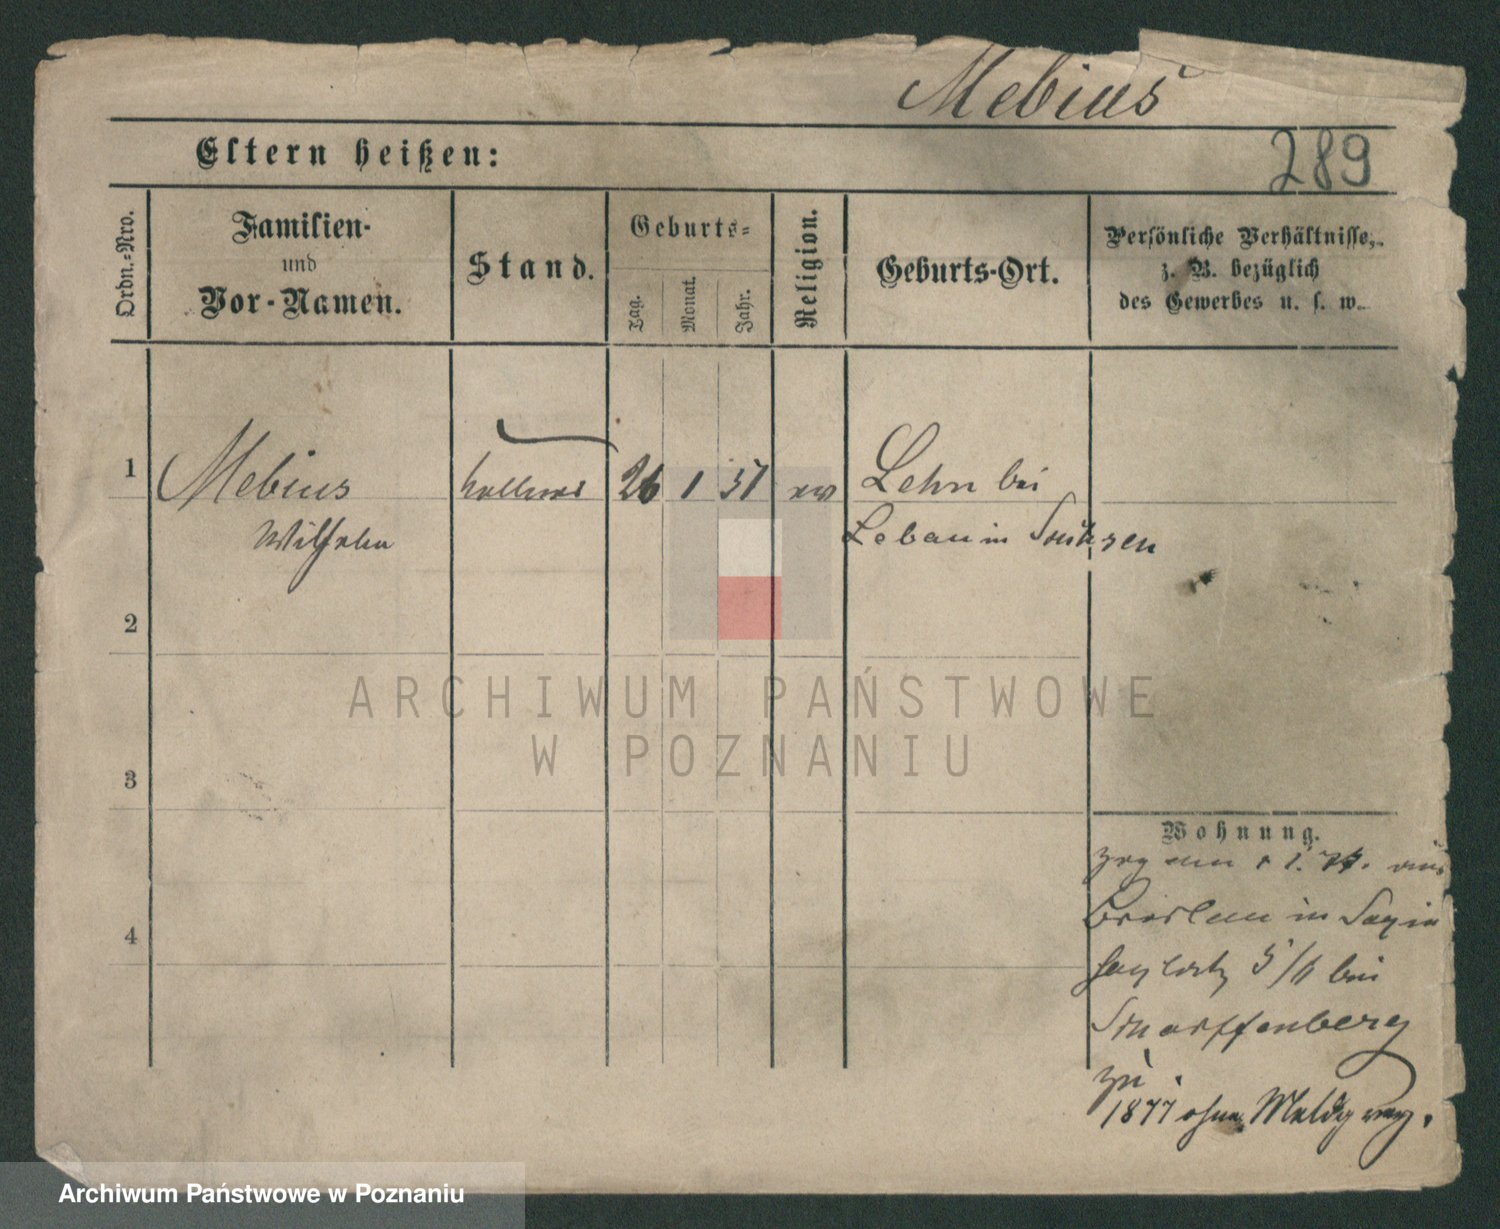 Mebius
289
Eltern heißen:
Ordn.-Nro.
Familien-
und
Vor-Namen.
Stand.
Geburts-
Tag.
Monat.
Jahr.
Religion.
Geburts-Ort.
Persönliche Verhältnisse,
z. B. bezüglich
des Gewerbes u. s. w.
1 Mebius Kellner 26 1 51 ev Lehn bei
Wilhelm Lobau in Sachsen
2
ARCHIWUM PAŃSTWOWE
W POZNANIU
3
Wohnung.
zog am 1. 77. aus
Breslau in
4
5/6 bei
Scharffenberg
zu.
1877 ohne Meldg verz.
Archiwum Państwowe w Poznaniu